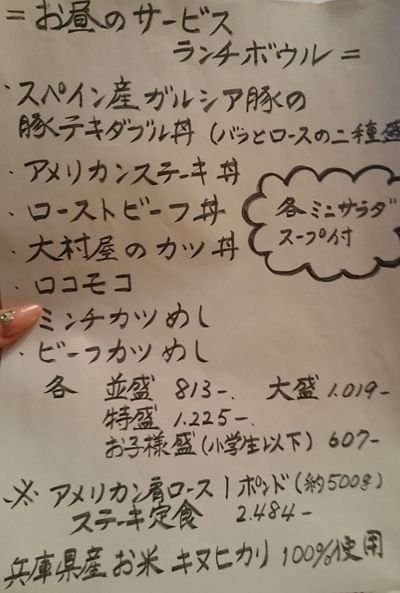 = お昼のサービス
ランチボウル =
・スペイン産ガルシア豚の
豚テキダブル丼 (バラとロースの二種盛
・アメリカンステーキ丼
・ローストビーフ丼
・大村屋のカツ丼
・ロコモコ
ミンチカツめし
・ビーフカツめし
各ミニサラダ
スープ付
各 並盛 813-. 大盛 1.019-
特盛 1.225-.
お子様盛(小学生以下) 607-
※ アメリカン肩ロース1ポンド(約500g)
ステーキ定食 2.484-
兵庫県産お米 キヌヒカリ 100%使用